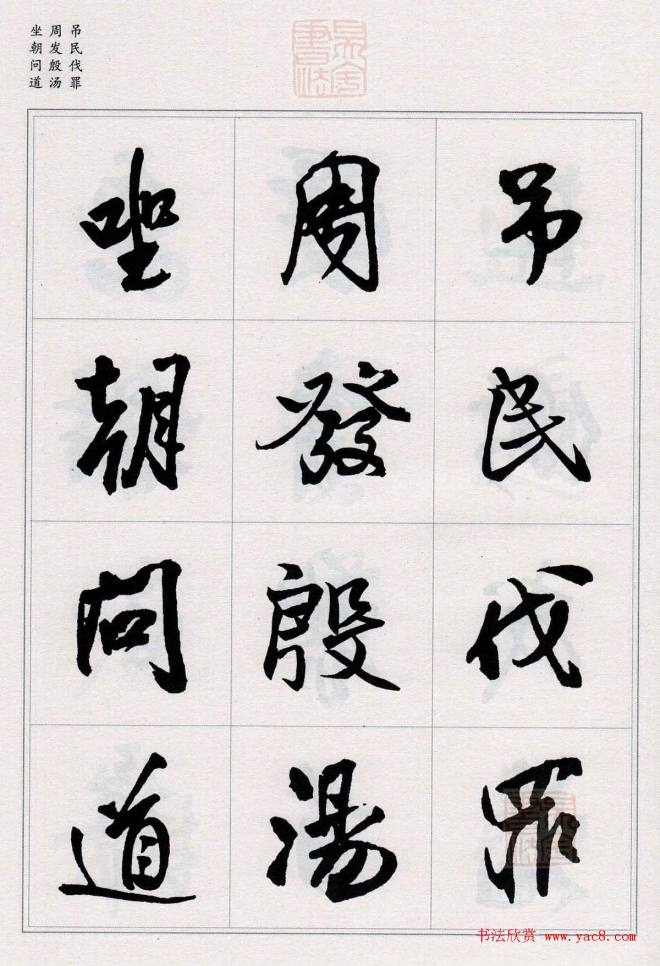 吊民伐罪
周发殷汤
坐朝问道
吊民伐罪
周發殷湯
坐朝問道
书法欣赏 www.yac8.com